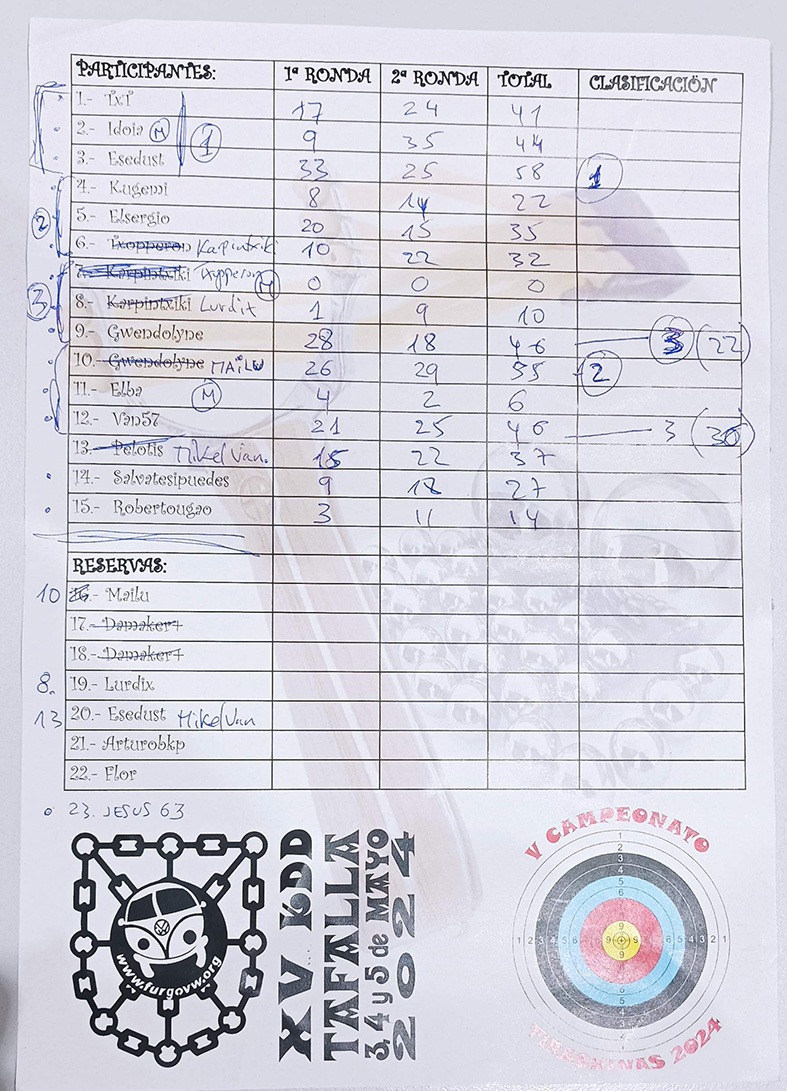 PARTICIPANTES: 1ª RONDA 2ª RONDA TOTAL CLASIFICACIÓN
1.- TxT 17 24 41
2.- Idoia M 9 35 44
1
3.- Esedust 33 25 58 1
4.- Kugemi 8 14 22
2 5.- Elsergio 20 15 35
6.- Txopperon Kapintxiki 10 22 32
7.- Karpintxiki Txopperon M 0 0 0
3 8.- Karpintxiki Lurdix 1 9 10
9.- Gwendolyne 28 18 46 3 (22)
10.- Gwendolyne MAILU 26 29 55 2
11.- Elba M 4 2 6
12.- Van57 21 25 46 3 (36)
13.- Pelotis Mikel Van. 15 22 37
14.- Salvatesipuedes 9 18 27
15.- Robertougao 3 11 14
RESERVAS:
10 .- Mailu
17.- Damaker+
18.- Damaker+
8. 19.- Lurdix
13 20.- Esedust Mikel Van
21.- Arturobkp
22.- Flor
23. JESUS 63
www.furgovw.org
XV KDD
TAFALLA
3, 4 y 5 de MAYO
2024
V CAMPEONATO
1
2
3
4
5
6
9
1 2 3 5 6 9 9 6 5 4 3 2 1
9
6
5
4
3
1
TIRAKHINAS 2024